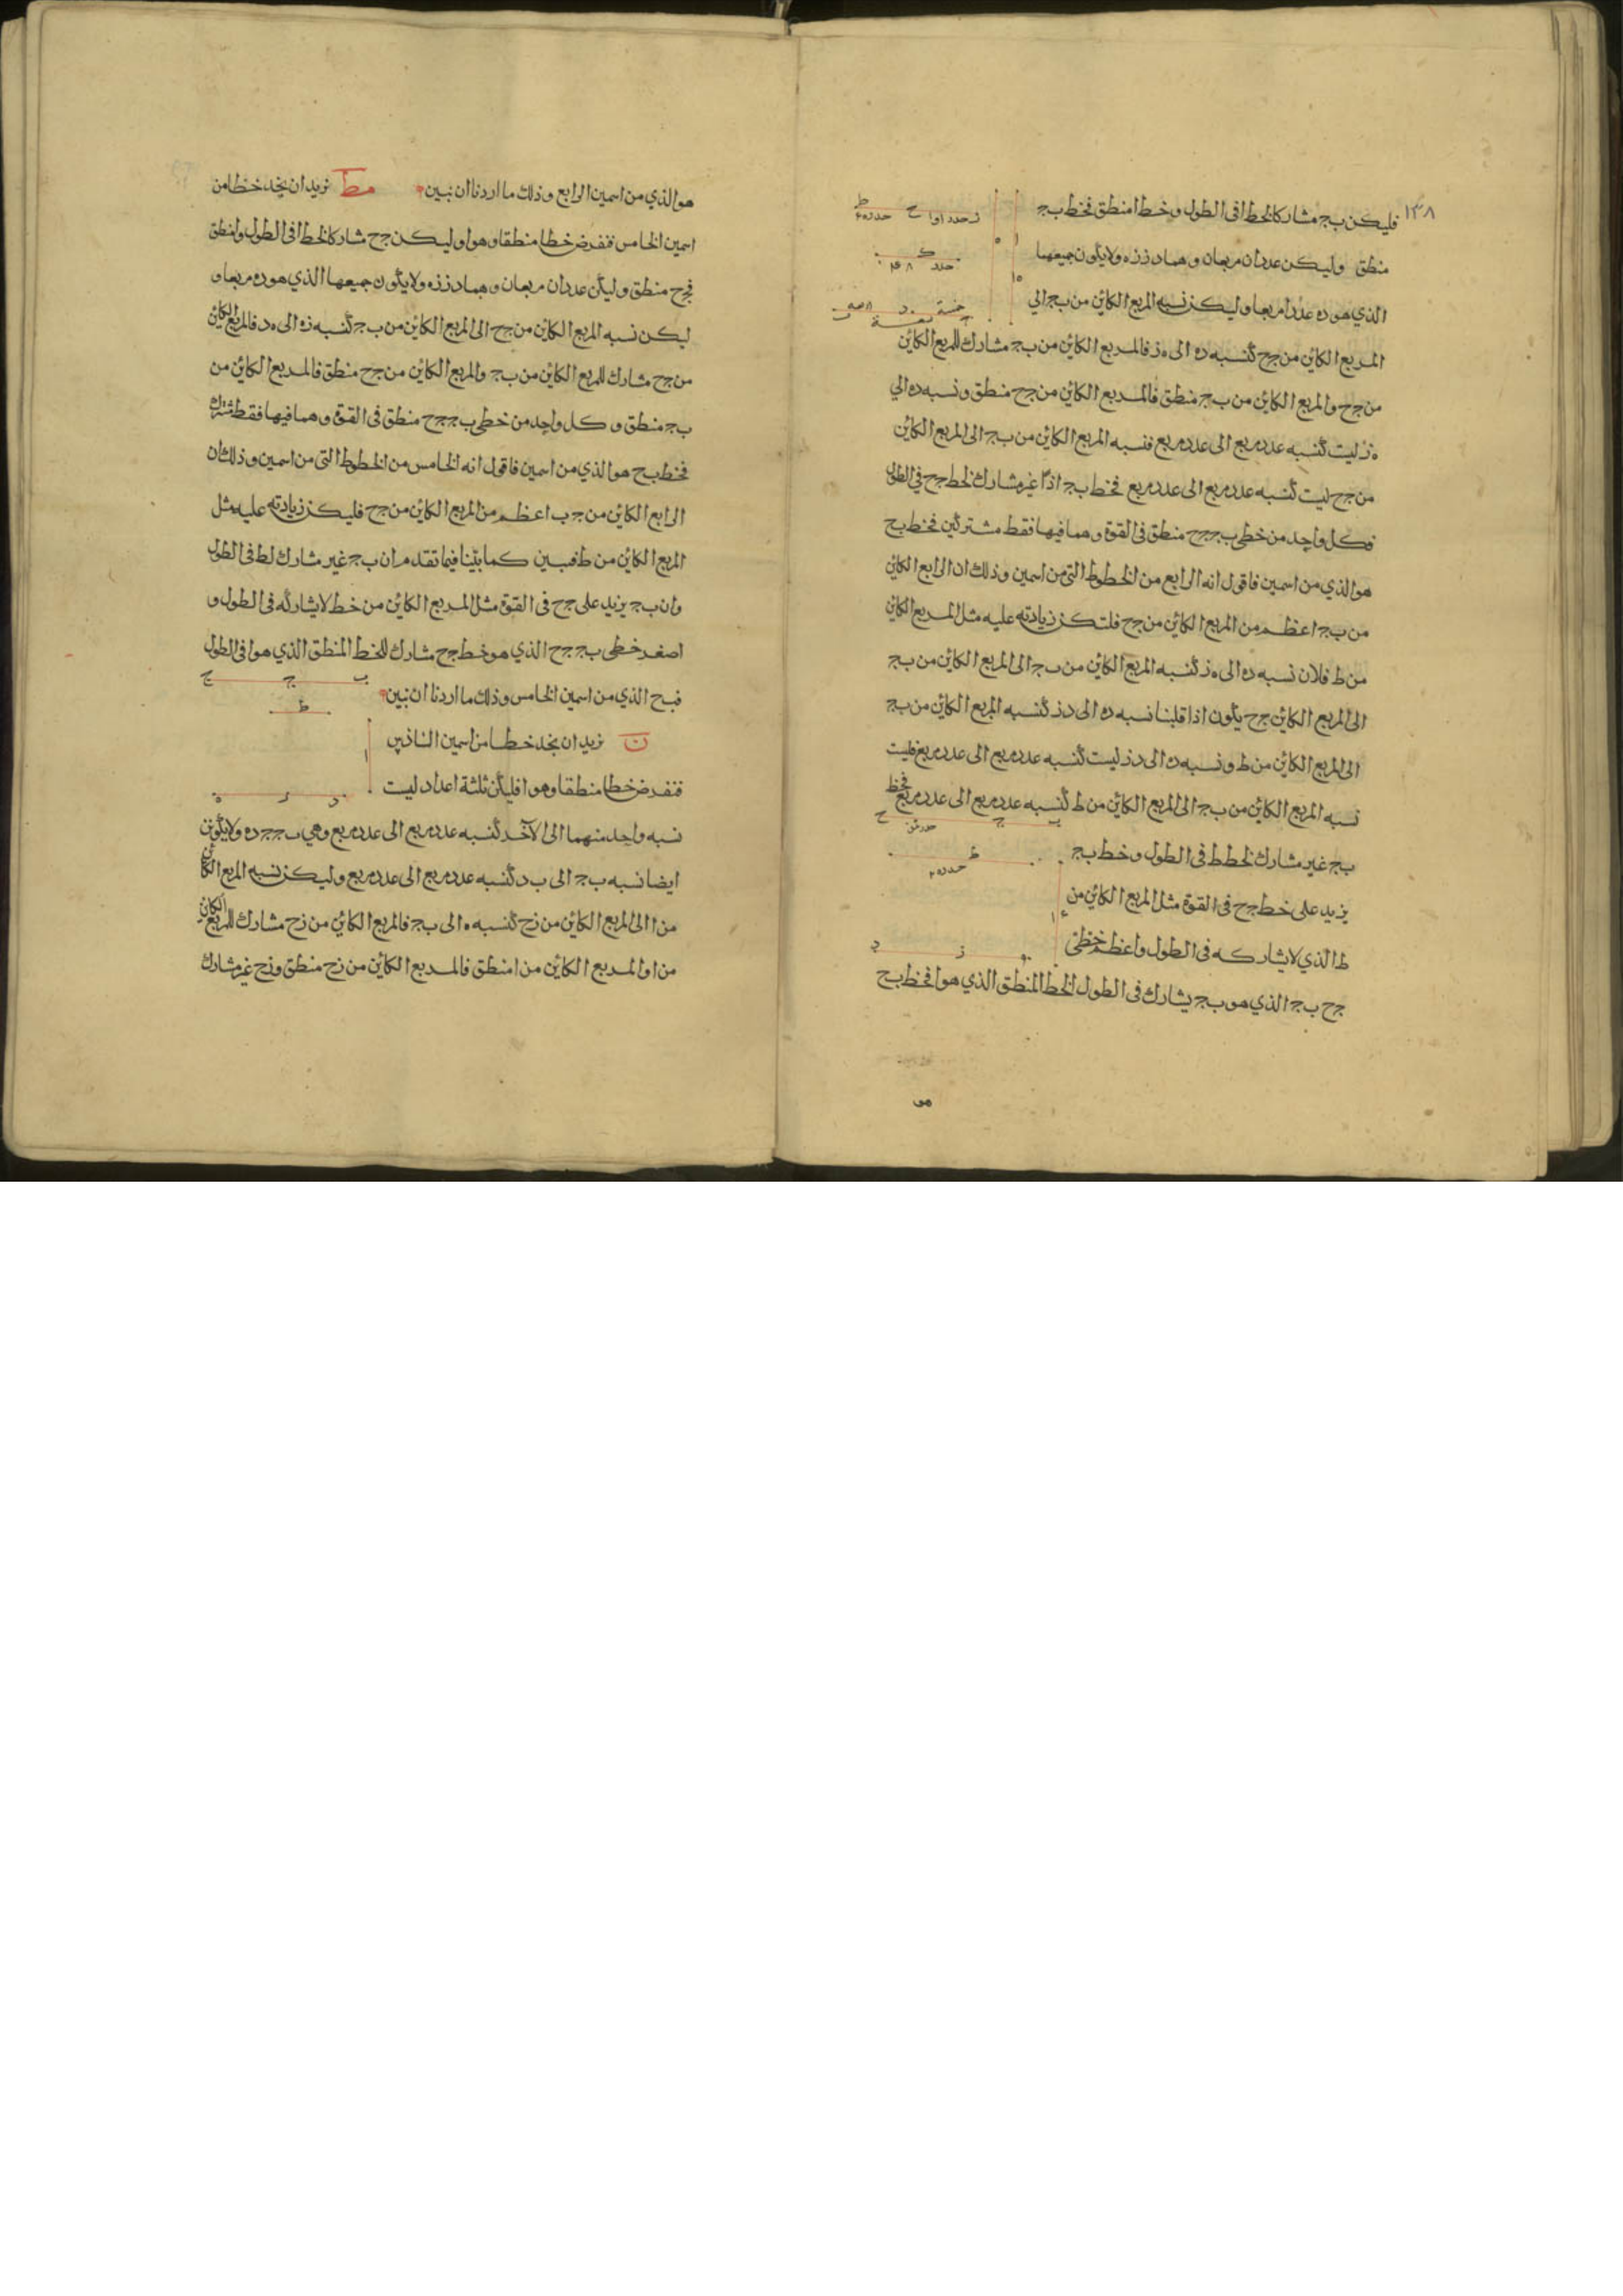 ١٣٨
فليكن بج مشاركا لخط ا فى الطول وخط ا منطق فخط بج
منطق وليكن عددان مربعان وهما در زه ولا يكون جميعها
الذي هو ده عددا مربعا وليكن نسبه المربع الكاين من بج الي
المربع الكاين من جح كنسبه ده الى ه ز فالمربع الكاين من بج مشارك للمربع الكاين
من جح والمربع الكاين من بج منطق فالمربع الكاين من جح منطق ونسبه ده الي
ه ز ليست كنسبه عدد مربع الى عدد مربع فنسبه المربع الكاين من بج الى المربع الكاين
من جح ليست كنسبه عدد مربع الى عدد مربع فخط بج اذًا غير مشارك لخط جح في الطول
فكل واحد من خطى بج جح منطق فى القوة وهما فيها فقط مشتركين فخط بح
هو الذي من اسمين فاقول انه الرابع من الخطوط التي من اسمين وذلك ان الرابع الكاين
من بج اعظم من المربع الكاين من جح فلتكن زيادته عليه مثل المربع الكاين
من ط فلان نسبه ده الى ه ز كنسبه المربع الكاين من بج الى المربع الكاين من بج
الى المربع الكاين جح يكون اذا قلبنا نسبه ده الى دز كنسبه المربع الكاين من بج
الى المربع الكاين من ط ونسبه ده الى دز ليست كنسبه عدد مربع الى عدد مربع فليست
نسبه المربع الكاين من بج الى المربع الكاين من ط كنسبه عدد مربع الى عدد مربع فخط
بج غير مشارك لخط ط فى الطول وخط بج
يزيد على خط جح فى القوة مثل المربع الكاين من
ط الذي لا يشاركه فى الطول واعظم خطى
جح بج الذي هو بج يشارك فى الطول الخط المنطق الذي هو ا فخط بح
هو
هو الذي من اسمين الرابع وذلك ما اردنا ان نبين مط نريد ان نجد خطا من
اسمين الخامس فنفرض خطا منطقا وهو ا وليكن جح مشاركا لخط ا فى الطول وا منطق
فجح منطق وليكن عددان مربعان وهما در زه ولا يكون جميعها الذي هو ده مربعا و
ليكن نسبه المربع الكاين من جح الى المربع الكاين من بج كنسبه زه الى ه د فالمربع الكاين
من جح مشارك للمربع الكاين من بج والمربع الكاين من جح منطق فالمربع الكاين من
بج منطق و كل واحد من خطى بج جح منطق فى القوة وهما فيها فقط مشترك
فخط بح هو الذي من اسمين فاقول انه الخامس من الخطوط التي من اسمين وذلك ان
الرابع الكاين من جب اعظم من المربع الكاين من جح فليكن زيادته عليه مثل
المربع الكاين من ط فبين كما بيّنا فيما تقدم ان بج غير مشارك لط فى الطول
وان بج يزيد على جح فى القوة مثل المربع الكاين من خط لا يشاركه فى الطول و
اصغر خطى بج جح الذي هو خط جح مشارك للخط المنطق الذي هو ا فى الطول
فبح الذي من اسمين الخامس وذلك ما اردنا ان نبين
ن نريد ان نجد خطا من اسمين السادس
فنفرض خطا منطقا وهو ا فليكن ثلثة اعداد ليست
نسبه واحد منهما الى الآخر كنسبه عدد مربع الى عدد مربع وهي بج جد ه ولا يكون
ايضا نسبه بج الى بد كنسبه عدد مربع الى عدد مربع وليكن نسبه المربع الكاين
من ا الى المربع الكاين من زح كنسبه ه الى بج فالمربع الكاين من زح مشارك للمربع الكاين
من ا والمربع الكاين من ا منطق فالمربع الكاين من زح منطق وزح غير مشارك